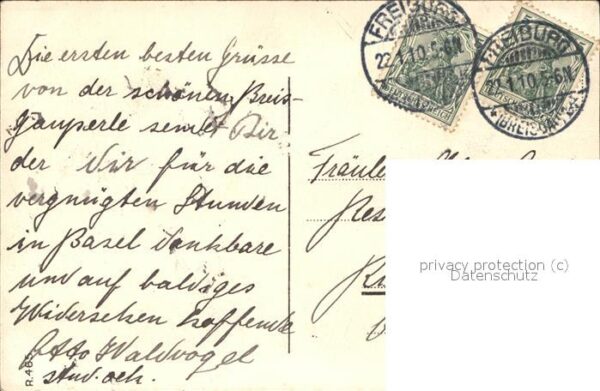 Die ersten besten Grüsse
von der schönen Breis-
gauperle sendet Dir
der Dir für die
vergnügten Stunden
in Basel dankbare
und auf baldiges
Widersehen hoffende
Otto Waldvogel
stud. oek.
R. 465
FREIBURG
22.1.10.5-6N
FREIBURG
22.1.10.5-6N
(BREISGAU)
Fräulein
privacy protection (c)
Datenschutz